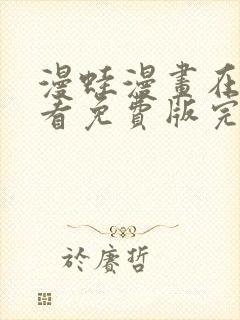 漫蛙漫畫在
看免費版完
於賡哲